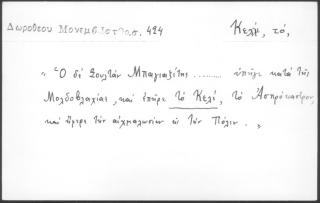 Δωροθέου Μονεμβ. Ιστ. σ. 424
Κελή, τό,
" Ὁ δέ Σουλτάν Μπαγιαζίτης .......... ὑπῆγε κατά τῆς
Μολδοβλαχίας, καί ἐπῆρε τό Κελί, τό Ἀσπρόκαστρον,
καί ἤφερε τήν αἰχμαλωσίαν εἰς τήν Πόλιν. "